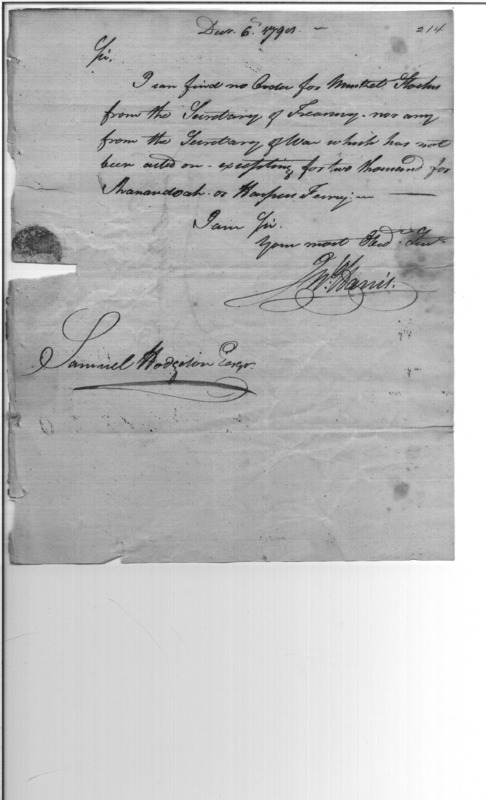 Decr. 6th 1798
214
Sir.
I can find no Order for Musket Stocks
from the Secretary of Treasury. nor any
from the Secretary of War which has not
been acted on. excepting for two thousand for
Shanandoah. or Harpers Ferry.
I am Sir.
Your most Obed. Serv.
Harris.
Samuel Hodgdon Esqr.